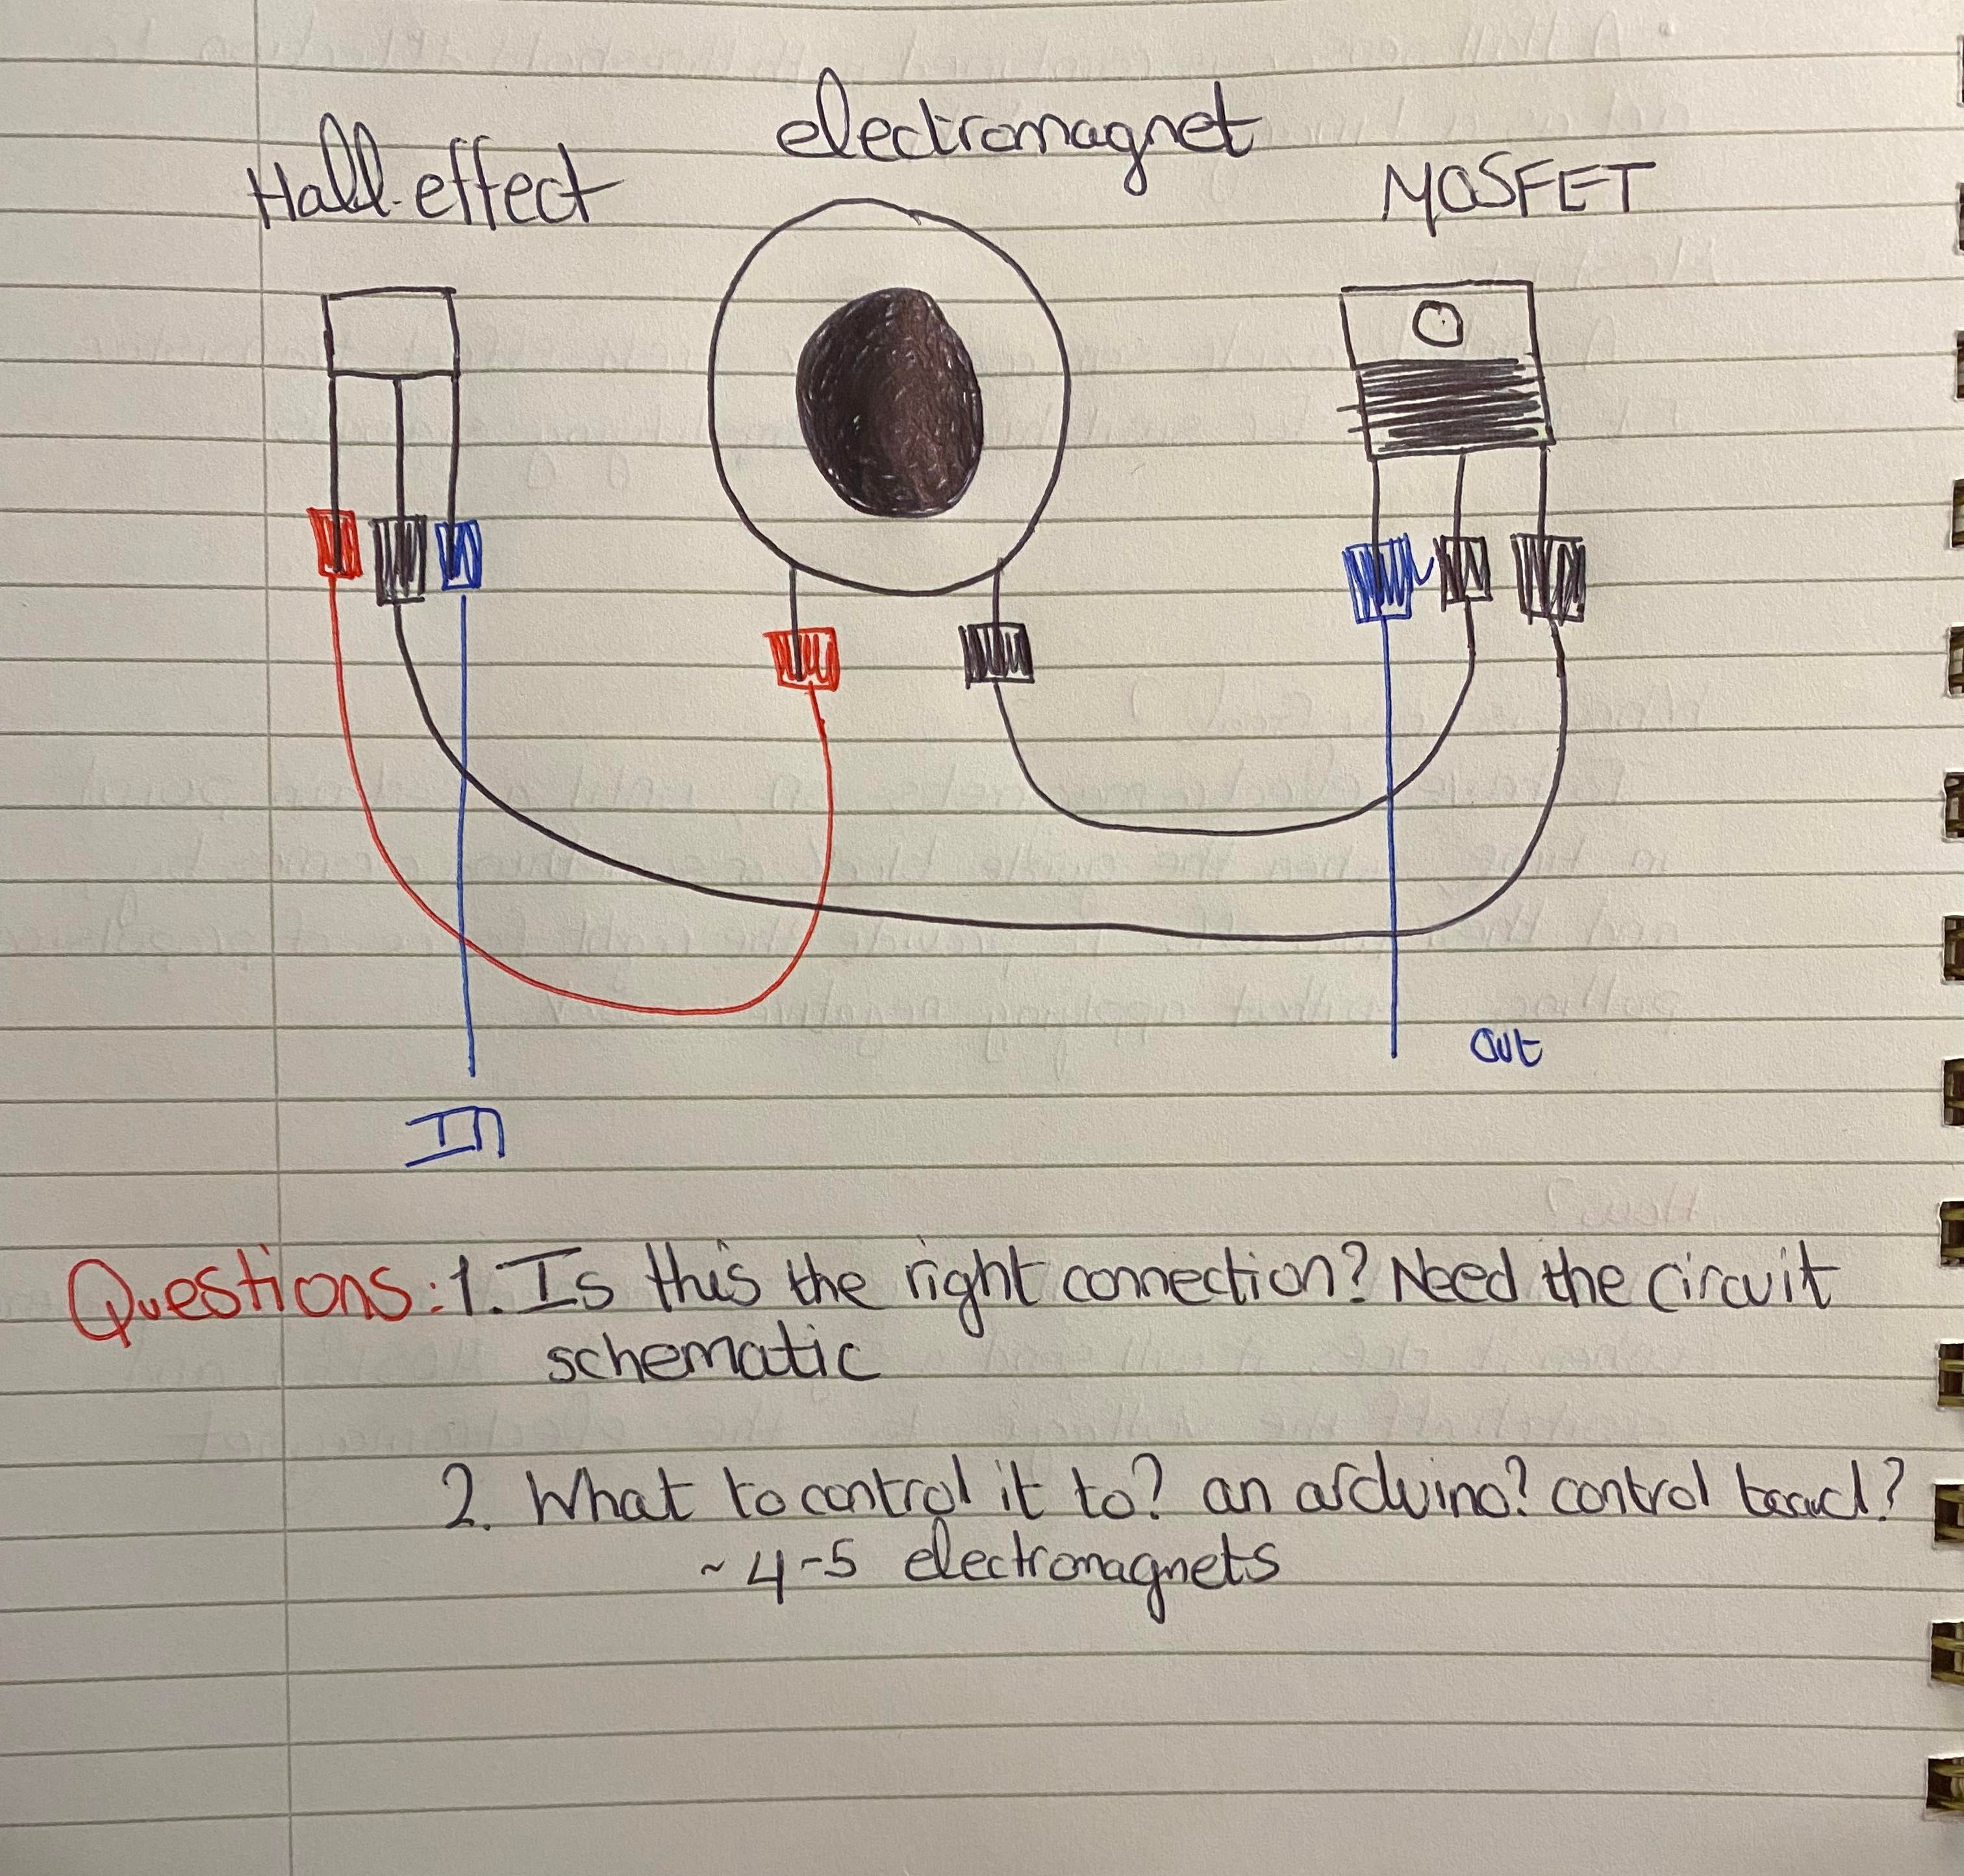 electromagnet
Hall-effect
MOSFET
out
In
Questions: 1. Is this the right connection? Need the circuit
schematic
2. What to control it to? an arduino? control board?
~ 4-5 electromagnets